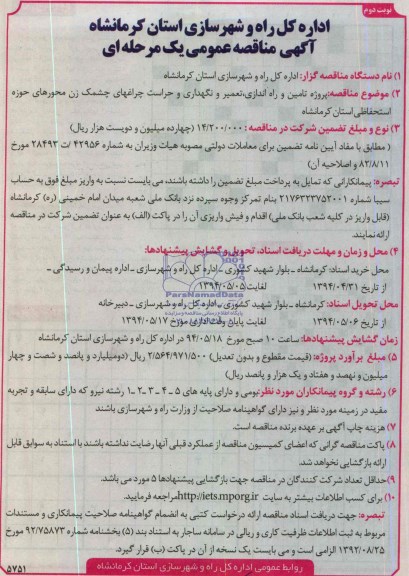 نوبت دوم
اداره کل راه و شهرسازی استان کرمانشاه
آگهی مناقصه عمومی یک مرحله ای
۱) نام دستگاه مناقصه گزار: اداره کل راه و شهرسازی استان کرمانشاه
۲) موضوع مناقصه: پروژه تامین و راه اندازی، تعمیر و نگهداری و حراست چراغهای چشمک زن محورهای حوزه
استحفاظی استان کرمانشاه
۳) نوع و مبلغ تضمین شرکت در مناقصه: ۱۴/۲۰۰/۰۰۰ (چهارده میلیون و دویست هزار ریال)
( مطابق با مفاد آیین نامه تضمین برای معاملات دولتی مصوبه هیات وزیران به شماره ۴۲۹۵۶ /ت ۲۸۴۹۳ مورخ
۸۲/۸/۱۱ و اصلاحیه آن)
تبصره: پیمانکارانی که تمایل به پرداخت مبلغ تضمین را داشته باشند، می بایست نسبت به واریز مبلغ فوق به حساب
سیبا شماره ۲۱۷۶۴۳۷۵۲۰۰۱ بنام تمرکز وجوه سپرده نزد بانک ملی شعبه میدان امام خمینی (ره) کرمانشاه
(قابل واریز در کلیه شعب بانک ملی) اقدام و فیش واریزی آن را در پاکت (الف) به عنوان تضمین شرکت در مناقصه
ارائه نمایند.
۴) محل و زمان و مهلت دریافت اسناد، تحویل و گشایش پیشنهادها:
محل خرید اسناد: کرمانشاه ـ بلوار شهید کشوری ـ اداره کل راه و شهرسازی ـ اداره پیمان و رسیدگی ـ
از تاریخ ۱۳۹۴/۰۴/۳۱ لغایت ۱۳۹۴/۰۵/۰۵
محل تحویل اسناد: کرمانشاه ـ بلوار شهید کشوری ـ اداره کل راه و شهرسازی ـ دبیرخانه
از تاریخ ۱۳۹۴/۰۵/۰۶ لغایت پایان وقت اداری مورخ ۱۳۹۴/۰۵/۱۷
زمان گشایش پیشنهادها: ساعت ۱۰ صبح مورخ ۹۴/۰۵/۱۸ در اداره کل راه و شهرسازی استان کرمانشاه
۵) مبلغ برآورد پروژه: (قیمت مقطوع و بدون تعدیل) ۲/۵۶۴/۹۷۱/۵۰۰ ریال (دومیلیارد و پانصد و شصت و چهار
میلیون و نهصد و هفتاد و یک هزار و پانصد ریال)
۶) رشته و گروه پیمانکاران مورد نظر: بومی و دارای پایه های ۵ ـ ۴ ـ ۳ ـ ۲ ـ ۱ رشته نیرو که دارای سابقه و تجربه
مفید در زمینه مورد نظر و نیز دارای گواهینامه صلاحیت از وزارت راه و شهرسازی باشند
۷) هزینه چاپ آگهی بر عهده برنده مناقصه است.
۸) پاکت مناقصه گرانی که اعضای کمیسیون مناقصه از عملکرد قبلی آنها رضایت نداشته باشند با استناد به سوابق قابل
ارائه بازگشایی نخواهد شد.
۹) حداقل تعداد شرکت کنندگان در مناقصه جهت بازگشایی پیشنهادها ۵ مورد می باشد.
۱۰) برای کسب اطلاعات بیشتر به سایت http://iets.mporg.ir مراجعه فرمایید.
تبصره: جهت دریافت اسناد مناقصه ارائه درخواست کتبی به انضمام گواهینامه صلاحیت پیمانکاری و مستندات
مربوط به ثبت اطلاعات ظرفیت کاری و ریالی در سامانه ساجار به استناد بند (۵) بخشنامه شماره ۹۲/۷۵۸۷۳ مورخ
۱۳۹۲/۰۸/۲۵ الزامی است و می بایست یک نسخه از آن در پاکت (ب) قرار گیرد.
روابط عمومی اداره کل راه و شهرسازی استان کرمانشاه
۵۷۵۱
ParsNamadData